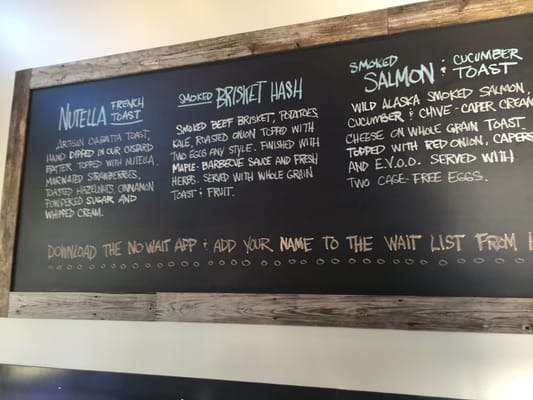 NUTELLA FRENCH TOAST
ARTISAN CIABATTA TOAST,
HAND DIPPED IN OUR CUSTARD
BATTER TOPPED WITH NUTELLA,
MARINATED STRAWBERRIES,
TOASTED HAZELNUTS, CINNAMON
POWDERED SUGAR AND
WHIPPED CREAM.
SMOKED BRISKET HASH
SMOKED BEEF BRISKET, POTATOES,
KALE, ROASTED ONION TOPPED WITH
TWO EGGS ANY STYLE. FINISHED WITH
MAPLE-BARBECUE SAUCE AND FRESH
HERBS. SERVED WITH WHOLE GRAIN
TOAST & FRUIT.
SMOKED SALMON & CUCUMBER TOAST
WILD ALASKA SMOKED SALMON,
CUCUMBER & CHIVE-CAPER CREAM
CHEESE ON WHOLE GRAIN TOAST
TOPPED WITH RED ONION, CAPERS
AND E.V.O.O. SERVED WITH
TWO CAGE-FREE EGGS.
DOWNLOAD THE NO WAIT APP & ADD YOUR NAME TO THE WAIT LIST FROM